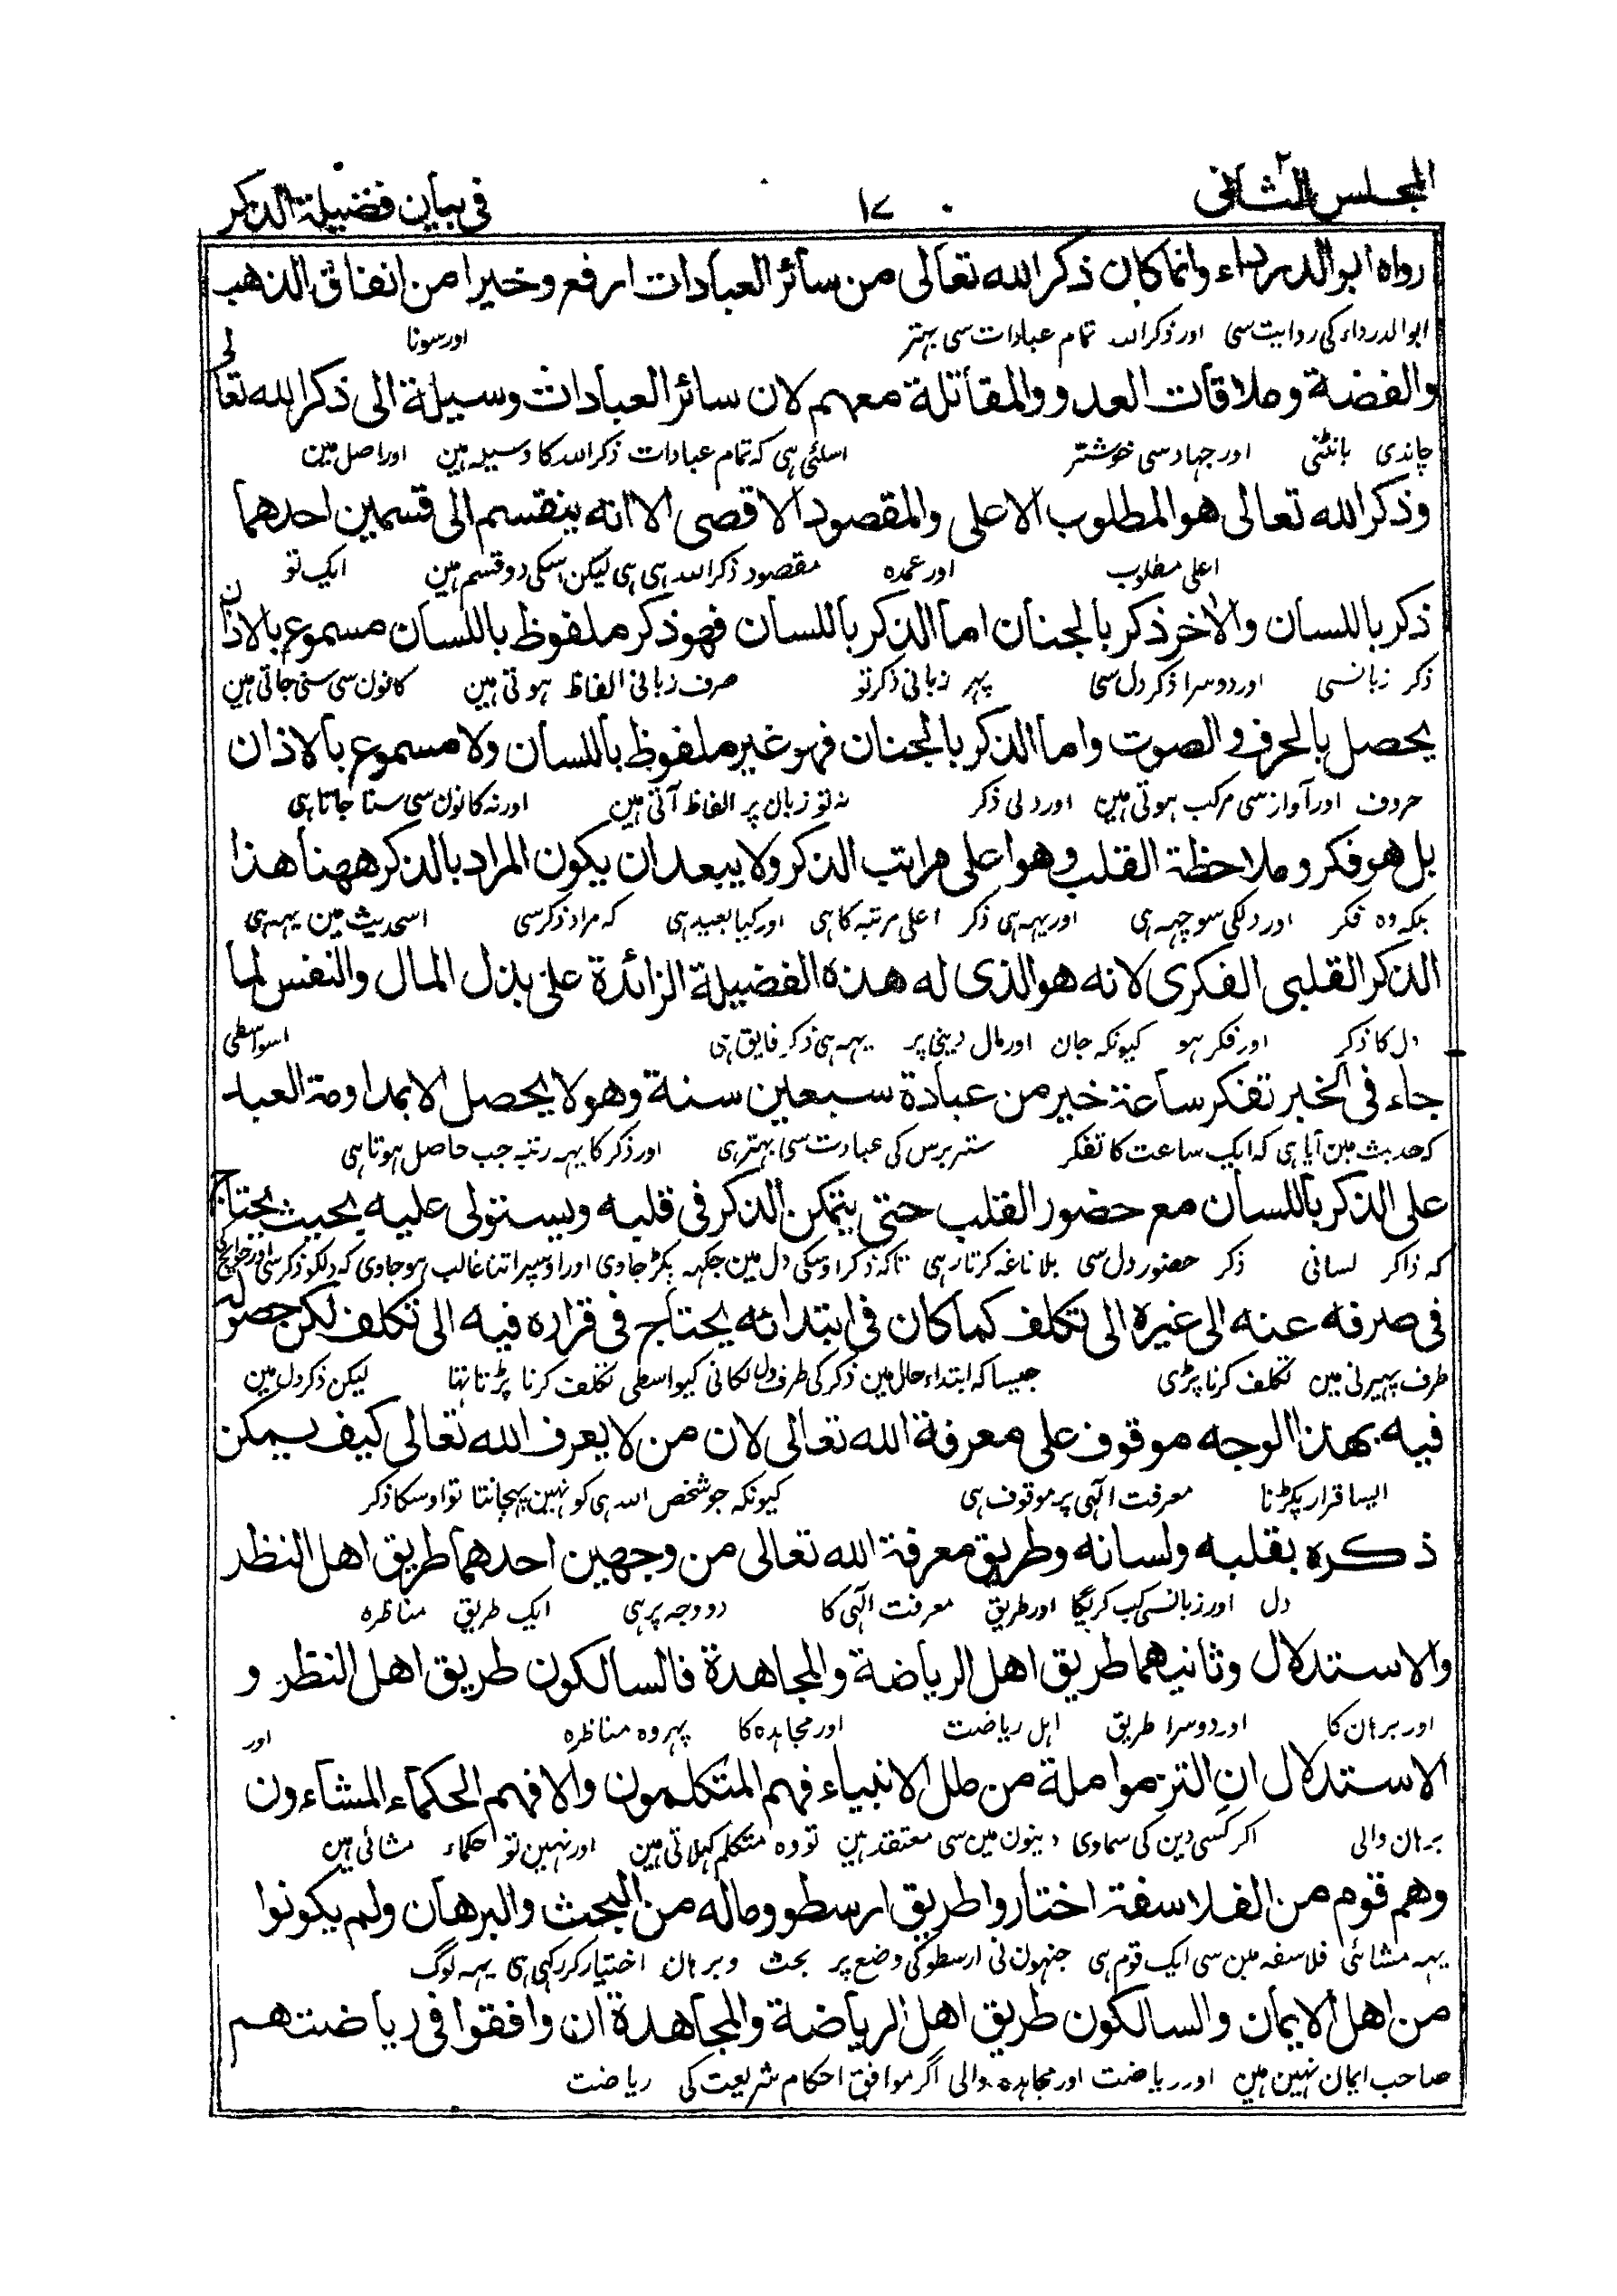 المجلس الثانى ١٧ فى بيان فضيلة الذكر
رواه ابو الدرداء وانما كان ذكر الله تعالى من سائر العبادات ارفع وخيرا من انفاق الذهب
ابوالدرداء کی روایت سی اور ذکر اللہ تمام عبادات سی بہتر اور سونا
والفضة وملاقات العدو والمقاتلة معهم لان سائر العبادات وسيلة الى ذكر الله تعالى
چاندی بانٹنی اور جہاد سی خوشتر اسلئی ہی کہ تمام عبادات ذکر اللہ کا وسیلہ ہین اور اصل مین
وذكر الله تعالى هو المطلوب الاعلى والمقصود الاقصى الا انه ينقسم الى قسمين احدهما
اعلی مطلوب اور عمدہ مقصود ذکر اللہ ہی ہی لیکن اسکی دو قسم ہین ایک تو
ذكر باللسان والأخر ذكر بالجنان اما الذكر باللسان فهو ذكر ملفوظ باللسان مسموع بالاذان
ذکر زبانسی اور دوسرا ذکر دل سی پہر زبانی ذکر تو صرف زبانی الفاظ ہوتی ہین کانون سی سنی جاتی ہین
يحصل بالحرف والصوت واما الذكر بالجنان فهو غير ملفوظ باللسان ولا مسموع بالاذان
حروف اور آواز سی مرکب ہوتی ہین اور دلی ذکر نہ تو زبان پر الفاظ آتی ہین اور نہ کانون سی سنا جاتا ہی
بل هو فكر وملاحظة القلب وهو اعلى مراتب الذكر ولا يبعد ان يكون المراد بالذكر ههنا هذا
بلکہ وہ فکر اور دلکی سوچہہ ہی اور یہہ ہی ذکر اعلی مرتبہ کا ہی اور کیا بعید ہی کہ مراد ذکر سی اسحدیث مین یہہ ہی
الذكر القلبى الفكرى لانه هو الذى له هذه الفضيلة الزائدة على بذل المال والنفس لما
دل کا ذکر اور فکر ہو کیونکہ جان اور مال دینی پر یہہ ہی ذکر فایق ہی اسواسطی
جاء فى الخبر تفكر ساعة خير من عبادة سبعين سنة وهو لا يحصل الا بمداومة العبد
کہ حدیث مین آیا ہی کہ ایک ساعت کا تفکر ستر برس کی عبادت سی بہتر ہی اور ذکر کا یہہ رتبہ جب حاصل ہوتا ہی
على الذكر باللسان مع حضور القلب حتى يتمكن الذكر فى قلبه ويستولى عليه بحيث يحتاج
کہ ذاکر لسانی ذکر حضور دل سی بلا ناغہ کرتا رہی تاکہ ذکر اوسکی دل مین جگہہ پکڑ جاوی اور اوسپر اتنا غالب ہوجاوی کہ دلکو ذکر سی
فى صرفه عنه الى غيره الى تكلف كما كان فى ابتدائه يحتاج فى قراره فيه الى تكلف لكن حصوله
طرف پہیرنی مین تکلف کرنا پڑی جیسا کہ ابتداء حال مین ذکر کی طرف دل لگانی کیواسطی تکلف کرنا پڑتا تہا لیکن ذکر دل مین
فيه بهذا الوجه موقوف على معرفة الله تعالى لان من لا يعرف الله تعالى كيف يمكن
ایسا قرار پکڑنا معرفت الٰہی پر موقوف ہی کیونکہ جو شخص اللہ ہی کو نہین پہچانتا تو اوسکا ذکر
ذكره بقلبه ولسانه وطريق معرفة الله تعالى من وجهين احدهما طريق اهل النظر
دل اور زبانسی کب کریگا اور طریق معرفت الٰہی کا دو وجہ پر ہی ایک طریق مناظرہ
والاستدلال وثانيهما طريق اهل الرياضة والمجاهدة فالسالكون طريق اهل النظر و
اور برہان کا اور دوسرا طریق اہل ریاضت اور مجاہدہ کا پہر وہ مناظرہ اور
الاستدلال ان التزموا ملة من ملل الانبياء فهم المتكلمون والا فهم الحكماء المشاءون
برہان والی اگر کسی دین کی سماوی دینون مین سی معتقد ہین تو وہ متکلم کہلاتی ہین اور نہین تو حکماء مشائی ہین
وهم قوم من الفلاسفة اختاروا طريق ارسطو وماله من البحث والبرهان ولم يكونوا
یہہ مشائی فلاسفہ مین سی ایک قوم ہی جنہون نی ارسطو کی وضع پر بحث و برہان اختیار کر رکہی ہی یہہ لوگ
من اهل الايمان والسالكون طريق اهل الرياضة والمجاهدة ان وافقوا فى رياضتهم
صاحب ایمان نہین ہین اور ریاضت اور مجاہدہ والی اگر موافق احکام شریعت کی ریاضت